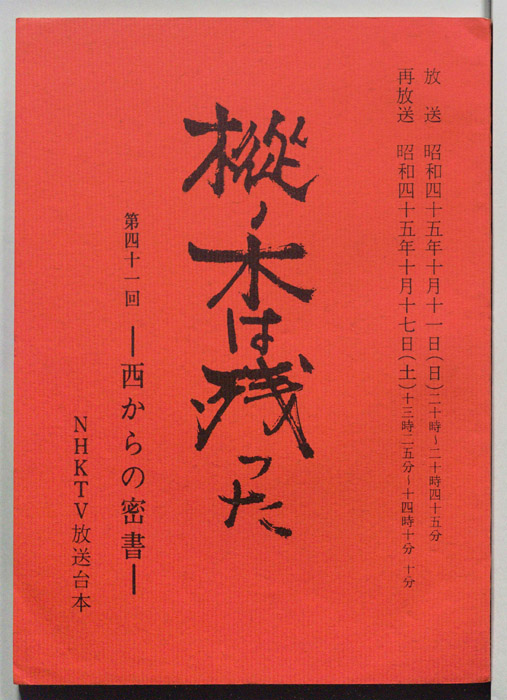 放送　昭和四十五年十月十一日(日)二十時~二十時四十五分
再放送　昭和四十五年十月十七日(土)十三時二五分~十四時十分　十分
樅ノ木は残った
第四十一回　―西からの密書―
NHKTV放送台本